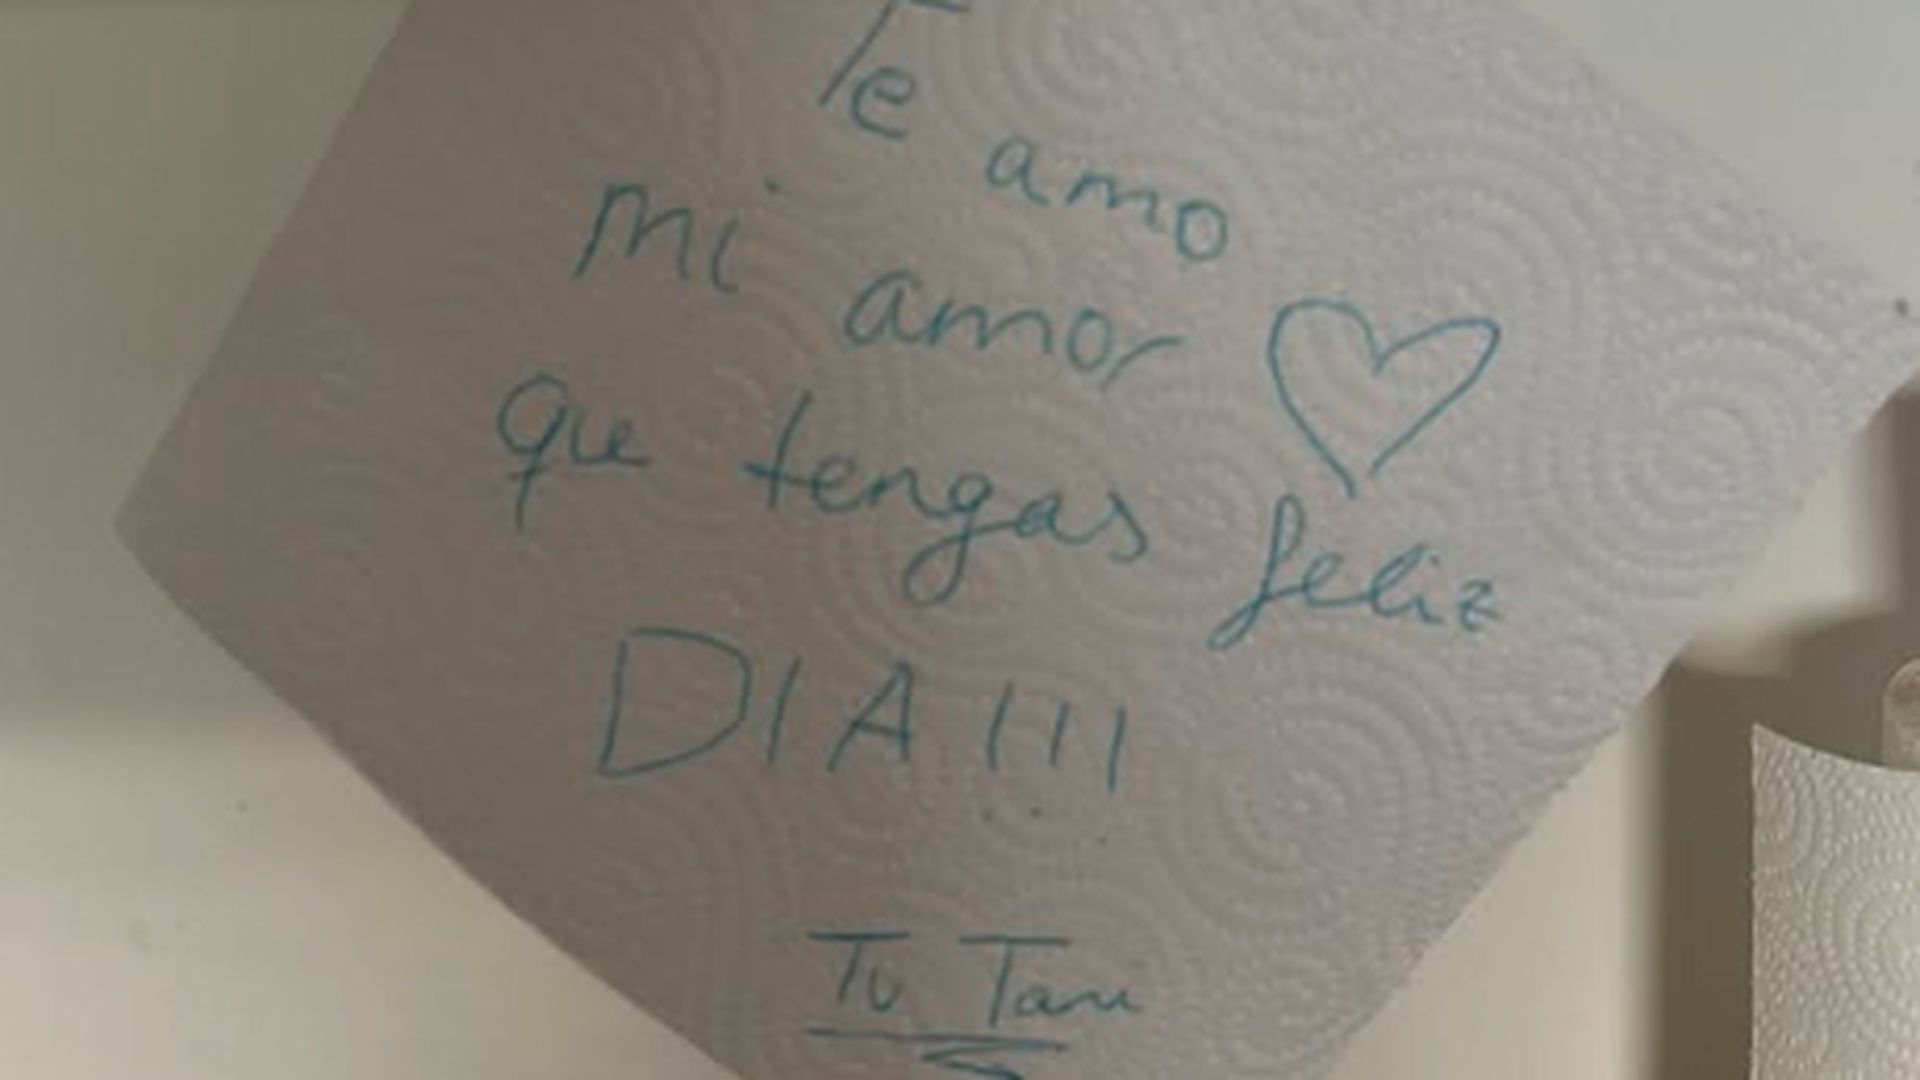 Te amo
mi amor
que tengas feliz
DIA !!!
Tu Tani